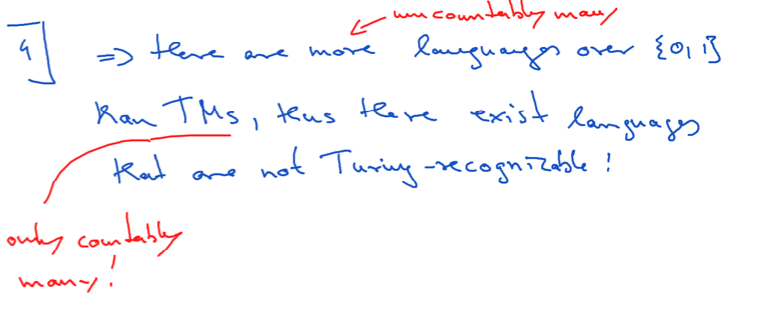 uncountably many
4] => there are more languages over {0,1}
than TMs, thus there exist languages
that are not Turing-recognizable!
only countably
many!